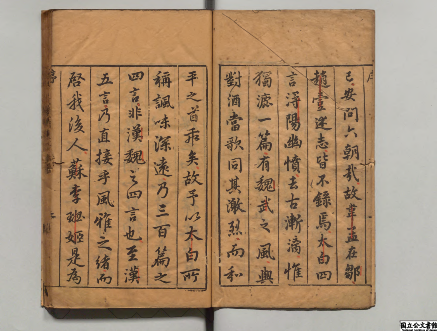 已安問六朝哉故韋孟在鄒
趙壹述志皆不錄焉太白四
言潯陽幽憤去古漸漓惟
獨漉一篇有魏武之風與
對酒當歌同其激烈而和
平之旨乖矣故予以太白所
稱諷味深遠乃三百篇之
四言非漢魏之四言也至漢
五言乃直接乎風雅之緒而
啓我後人蘇李班姬是為
序
國立公文書館